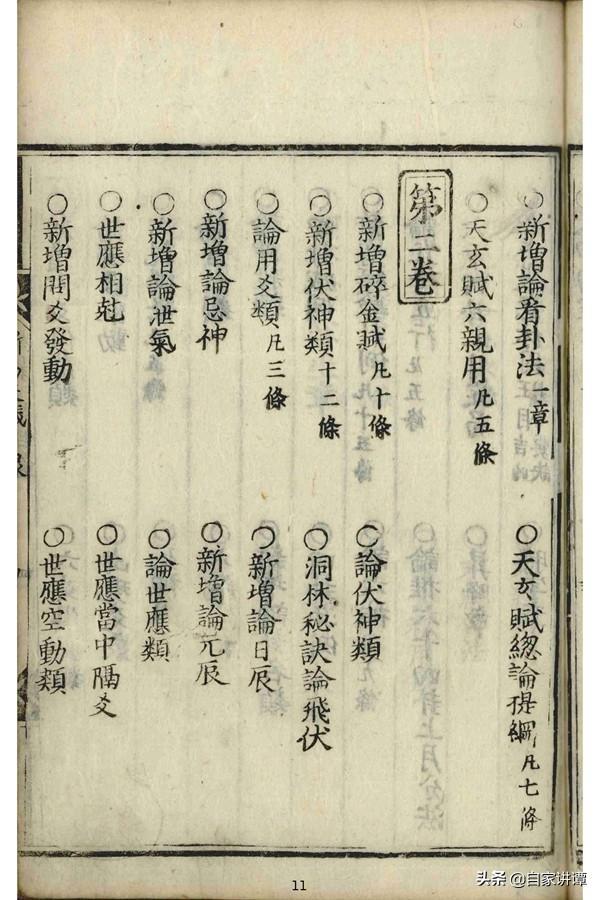 ○新增論看卦法一章 ○天玄賦總論提綱凡七條
○天玄賦六親用凡五條
第二卷
○新增碎金賦凡十條 ○論伏神類
○新增伏神類十二條 ○洞林秘訣論飛伏
○論用爻類凡三條 ○新增論日辰
○新增論忌神 ○新增論元辰
○新增論泄氣 ○論世應類
○世應相尅 ○世應當中隔爻
○新增間爻發動 ○世應空動類
11
头条 @自家讲谭